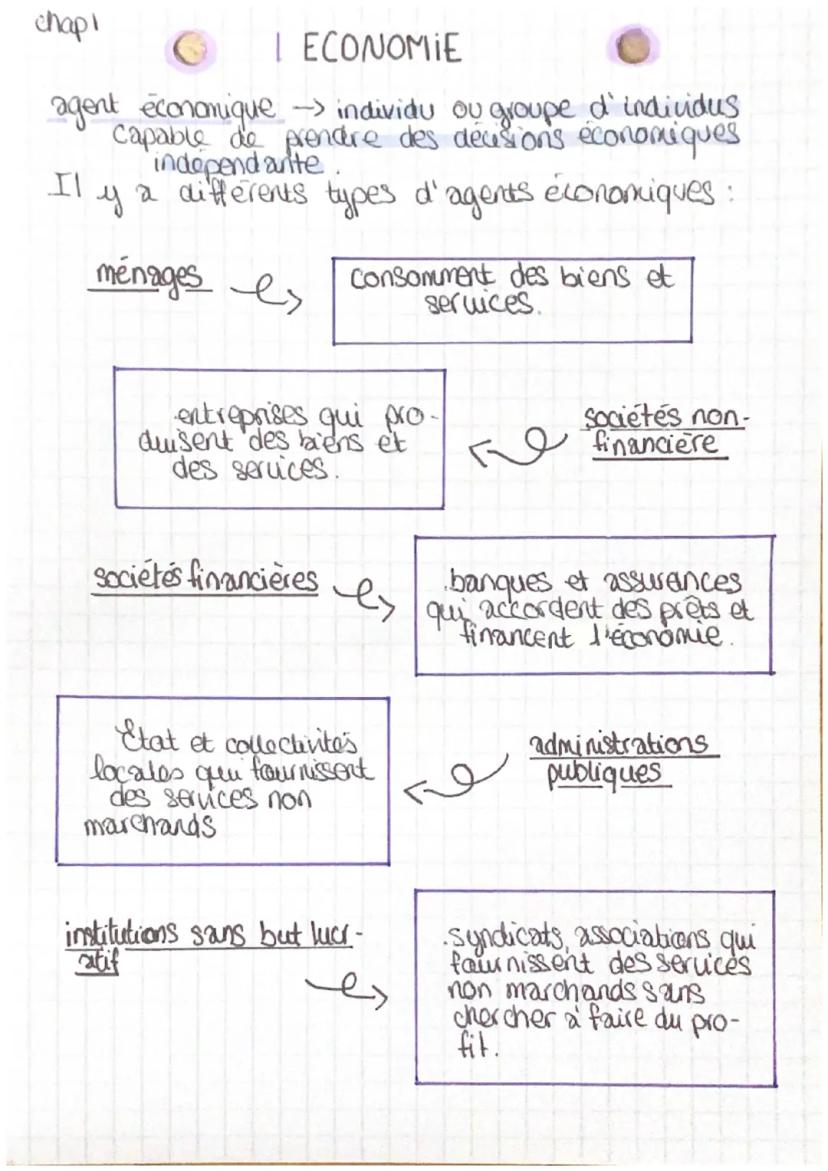 chap 1
ECONOMIE
agent économique → individu ou groupe d'individus
capable de prendre des décisions économiques
indépendante.
Il y a différents types d'agents économiques :
ménages
consomment des biens et
services.
entreprises qui pro-
duisent des biens et
des services.
sociétés non-
financière
sociétés financières
banques et assurances
qui accordent des prêts et
financent l'économie.
État et collectivités
locales qui fournissent
des services non
marchands
administrations
publiques
institutions sans but lucr-
atif
syndicats, associations qui
fournissent des services
non marchands sans
chercher à faire du pro-
fit.